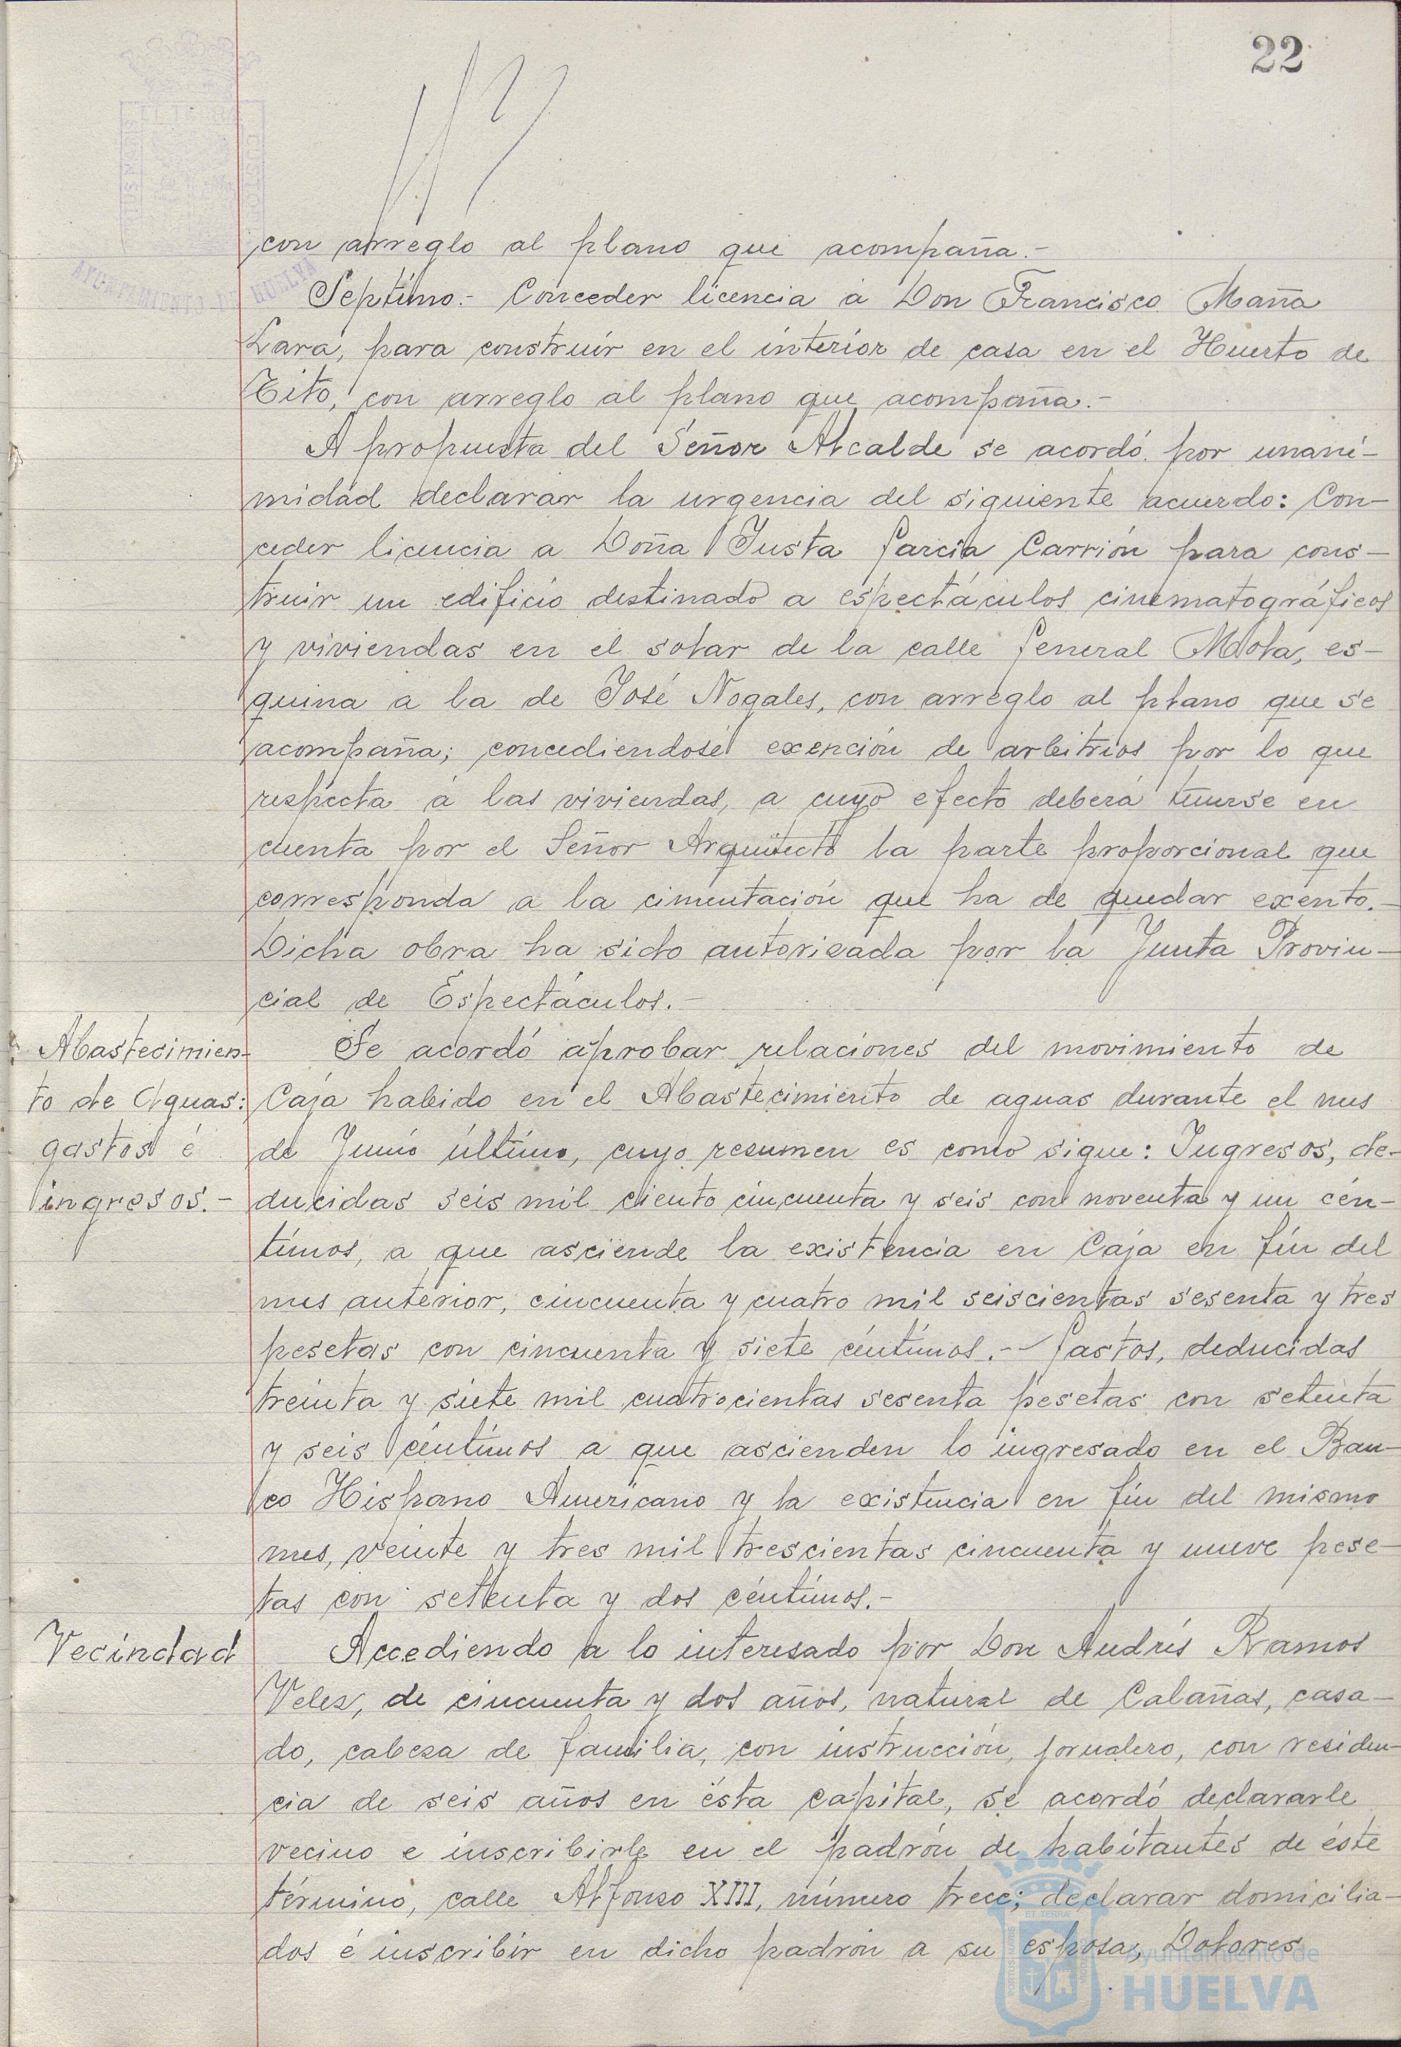 22
con arreglo al plano que acompaña.-
Septimo.- Conceder licencia a Don Francisco Maña
Lara, para construir en el interior de casa en el Huerto de
Tito, con arreglo al plano que acompaña.-
A propuesta del Señor Alcalde se acordó por unani-
midad declarar la urgencia del siguiente acuerdo: Con-
ceder licencia a Doña Justa García Carrión para cons-
truir un edificio destinado a espectáculos cinematográficos
y viviendas en el solar de la calle General Mola, es-
quina a la de José Nogales, con arreglo al plano que se
acompaña; concediendose exención de arbitrios por lo que
respecta á las viviendas, a cuyo efecto deberá tenerse en
cuenta por el Señor Arquitecto la parte proporcional que
corresponda a la cimentación que ha de quedar exento.-
Dicha obra ha sido autorizada por la Junta Provin-
cial de Espectáculos.-
Abastecimien-
to de Aguas:
gastos é
ingresos.-
Se acordó aprobar relaciones del movimiento de
Caja habido en el Abastecimiento de aguas durante el mes
de Junio último, cuyo resumen es como sigue: Ingresos, de-
ducidas seis mil ciento cincuenta y seis con noventa y un cén-
timos, a que asciende la existencia en Caja en fín del
mes anterior, cincuenta y cuatro mil seiscientas sesenta y tres
pesetas con cincuenta y siete céntimos.-- Gastos, deducidas
treinta y siete mil cuatrocientas sesenta pesetas con setenta
y seis céntimos a que ascienden lo ingresado en el Ban-
co Hispano Americano y la existencia en fín del mismo
mes, veinte y tres mil trescientas cincuenta y nueve pese-
tas con setenta y dos céntimos.-
Vecindad
Accediendo a lo interesado por Don Andrés Ramos
Velez, de cincuenta y dos años, natural de Calañas, casa-
do, cabeza de familia, con instrucción, jornalero, con residen-
cia de seis años en ésta capital, se acordó declararle
vecino e inscribirle en el padrón de habitantes de éste
término, calle Alfonso XIII, número trece; declarar domicilia-
dos é inscribir en dicho padrón a su esposa, Dolores
AYUNTAMIENTO DE HUELVA
Ayuntamiento de
HUELVA